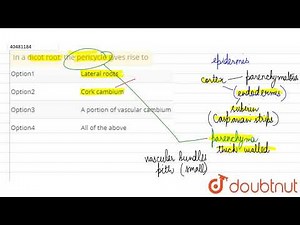 40481184
In a dicot root, the pericycle gives rise to
Option1 Lateral roots
Option2 Cork cambium
Option3 A portion of vascular cambium
Option4 All of the above
epidermis
cortex parenchymatous
(endodermis)
suberin
(Casparian strips)
parenchyma
thick walled
vascular bundles
pith (small)
doubtnut